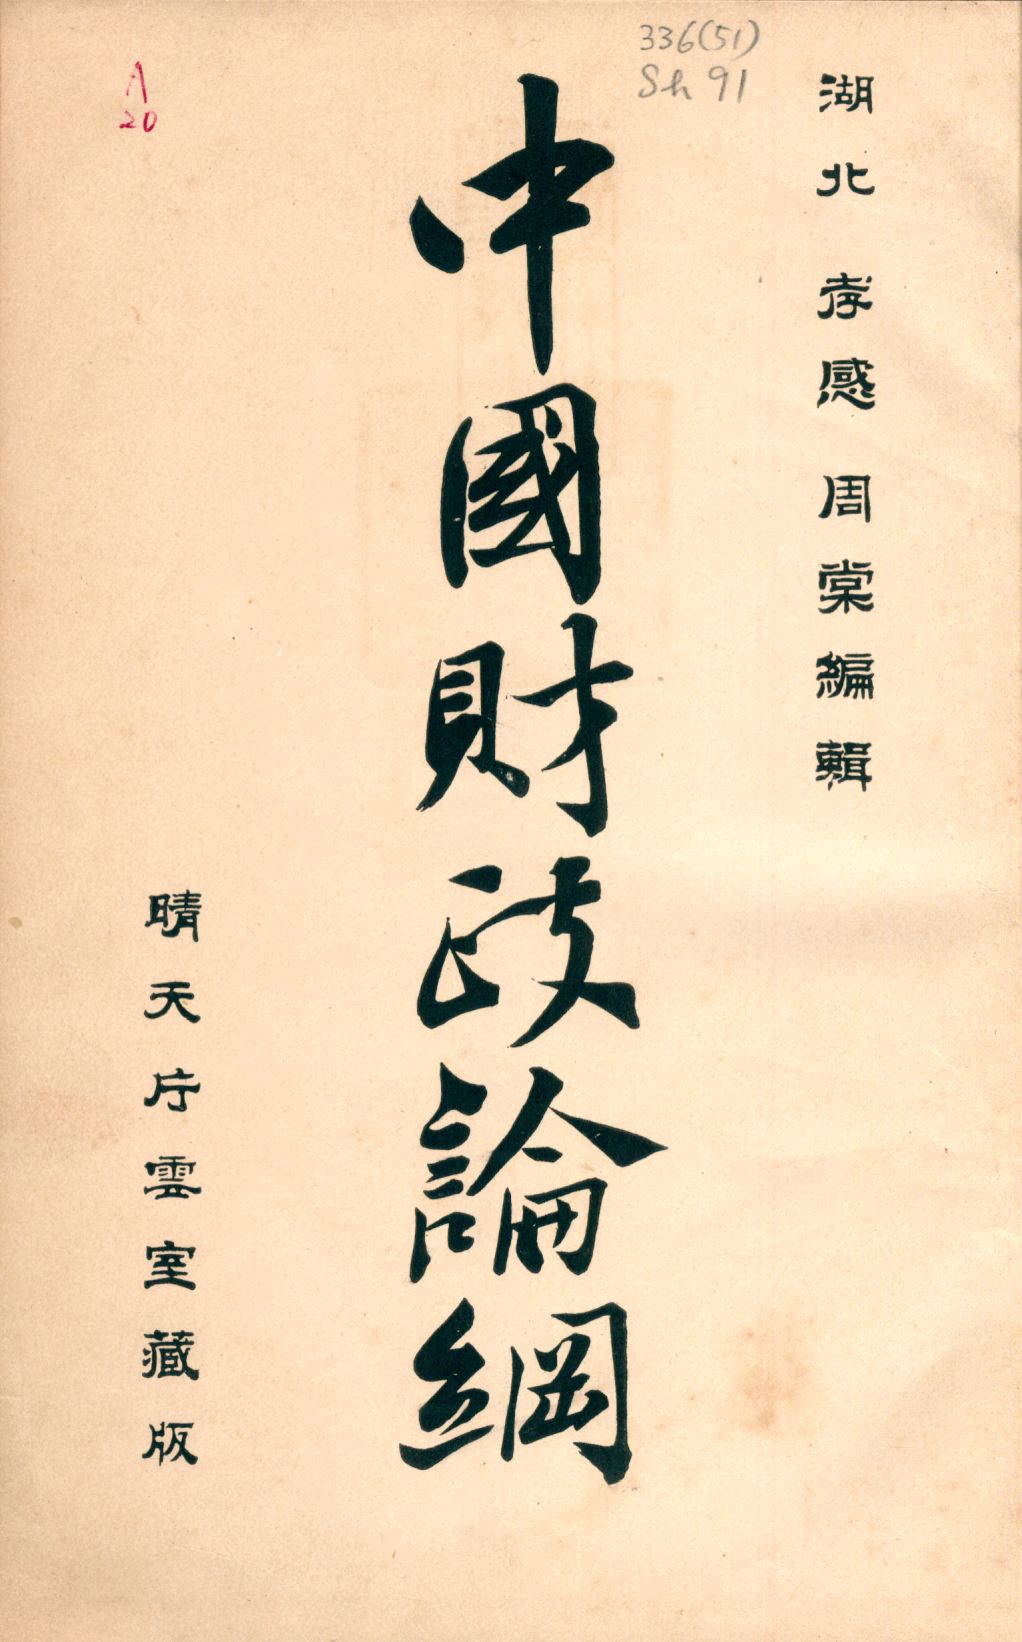 336(51)
Sh 91
A
20
湖北 孝感 周棠編輯
中國財政論綱
晴天片雲室藏版